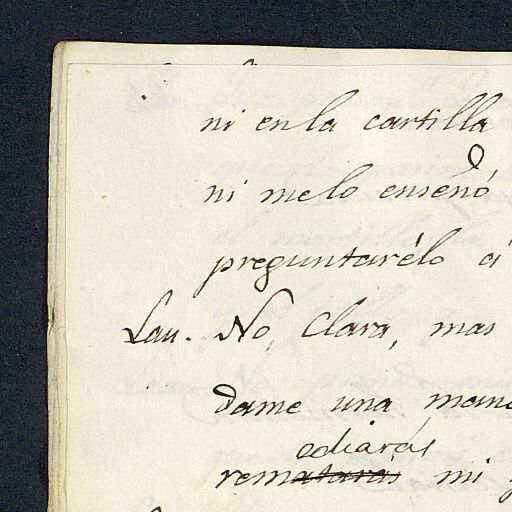 ni en la cartilla
ni melo enseñó
preguntarélo á
Lau. No, Clara, mas
dame una mano
ediarás
rematarás mi